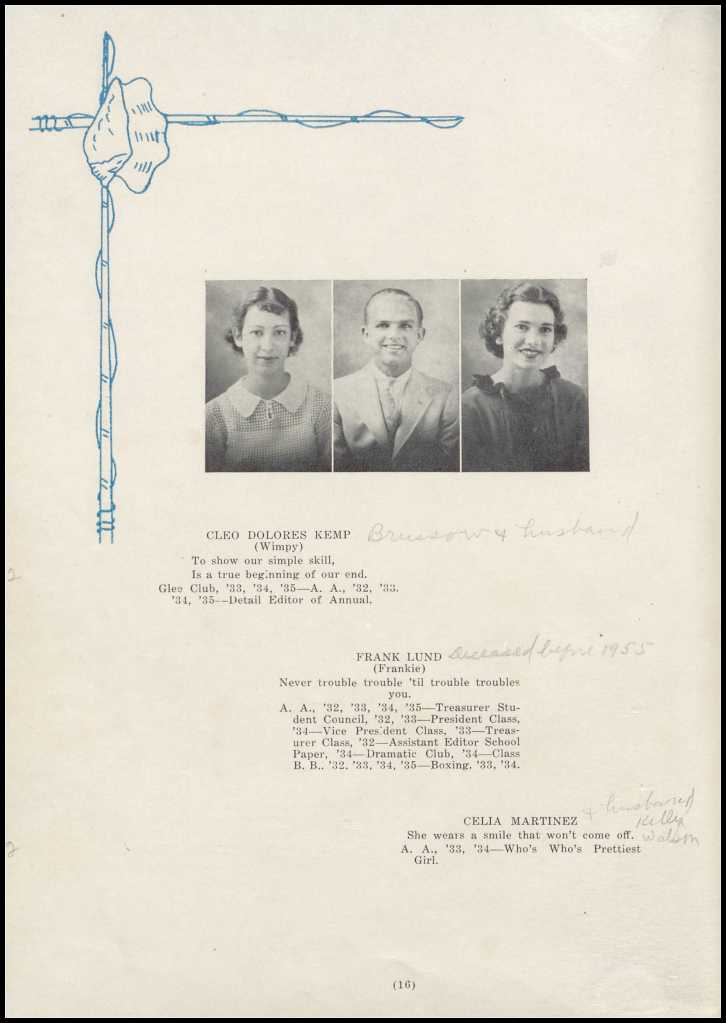 CLEO DOLORES KEMP Brussow & husband
(Wimpy)
To show our simple skill,
Is a true beginning of our end.
Glee Club, '33, '34, '35—A. A., '32, '33.
'34, '35—Detail Editor of Annual.
2
FRANK LUND Deceased before 1955
(Frankie)
Never trouble trouble 'til trouble troubles
you.
A. A., '32, '33, '34, '35—Treasurer Stu-
dent Council, '32, '33—President Class,
'34—Vice President Class, '33—Treas-
urer Class, '32—Assistant Editor School
Paper, '34—Dramatic Club, '34—Class
B. B., '32, '33, '34, '35—Boxing, '33, '34.
CELIA MARTINEZ & husband
Kelly
Watson
She wears a smile that won't come off.
A. A., '33, '34—Who's Who's Prettiest
Girl.
2
(16)